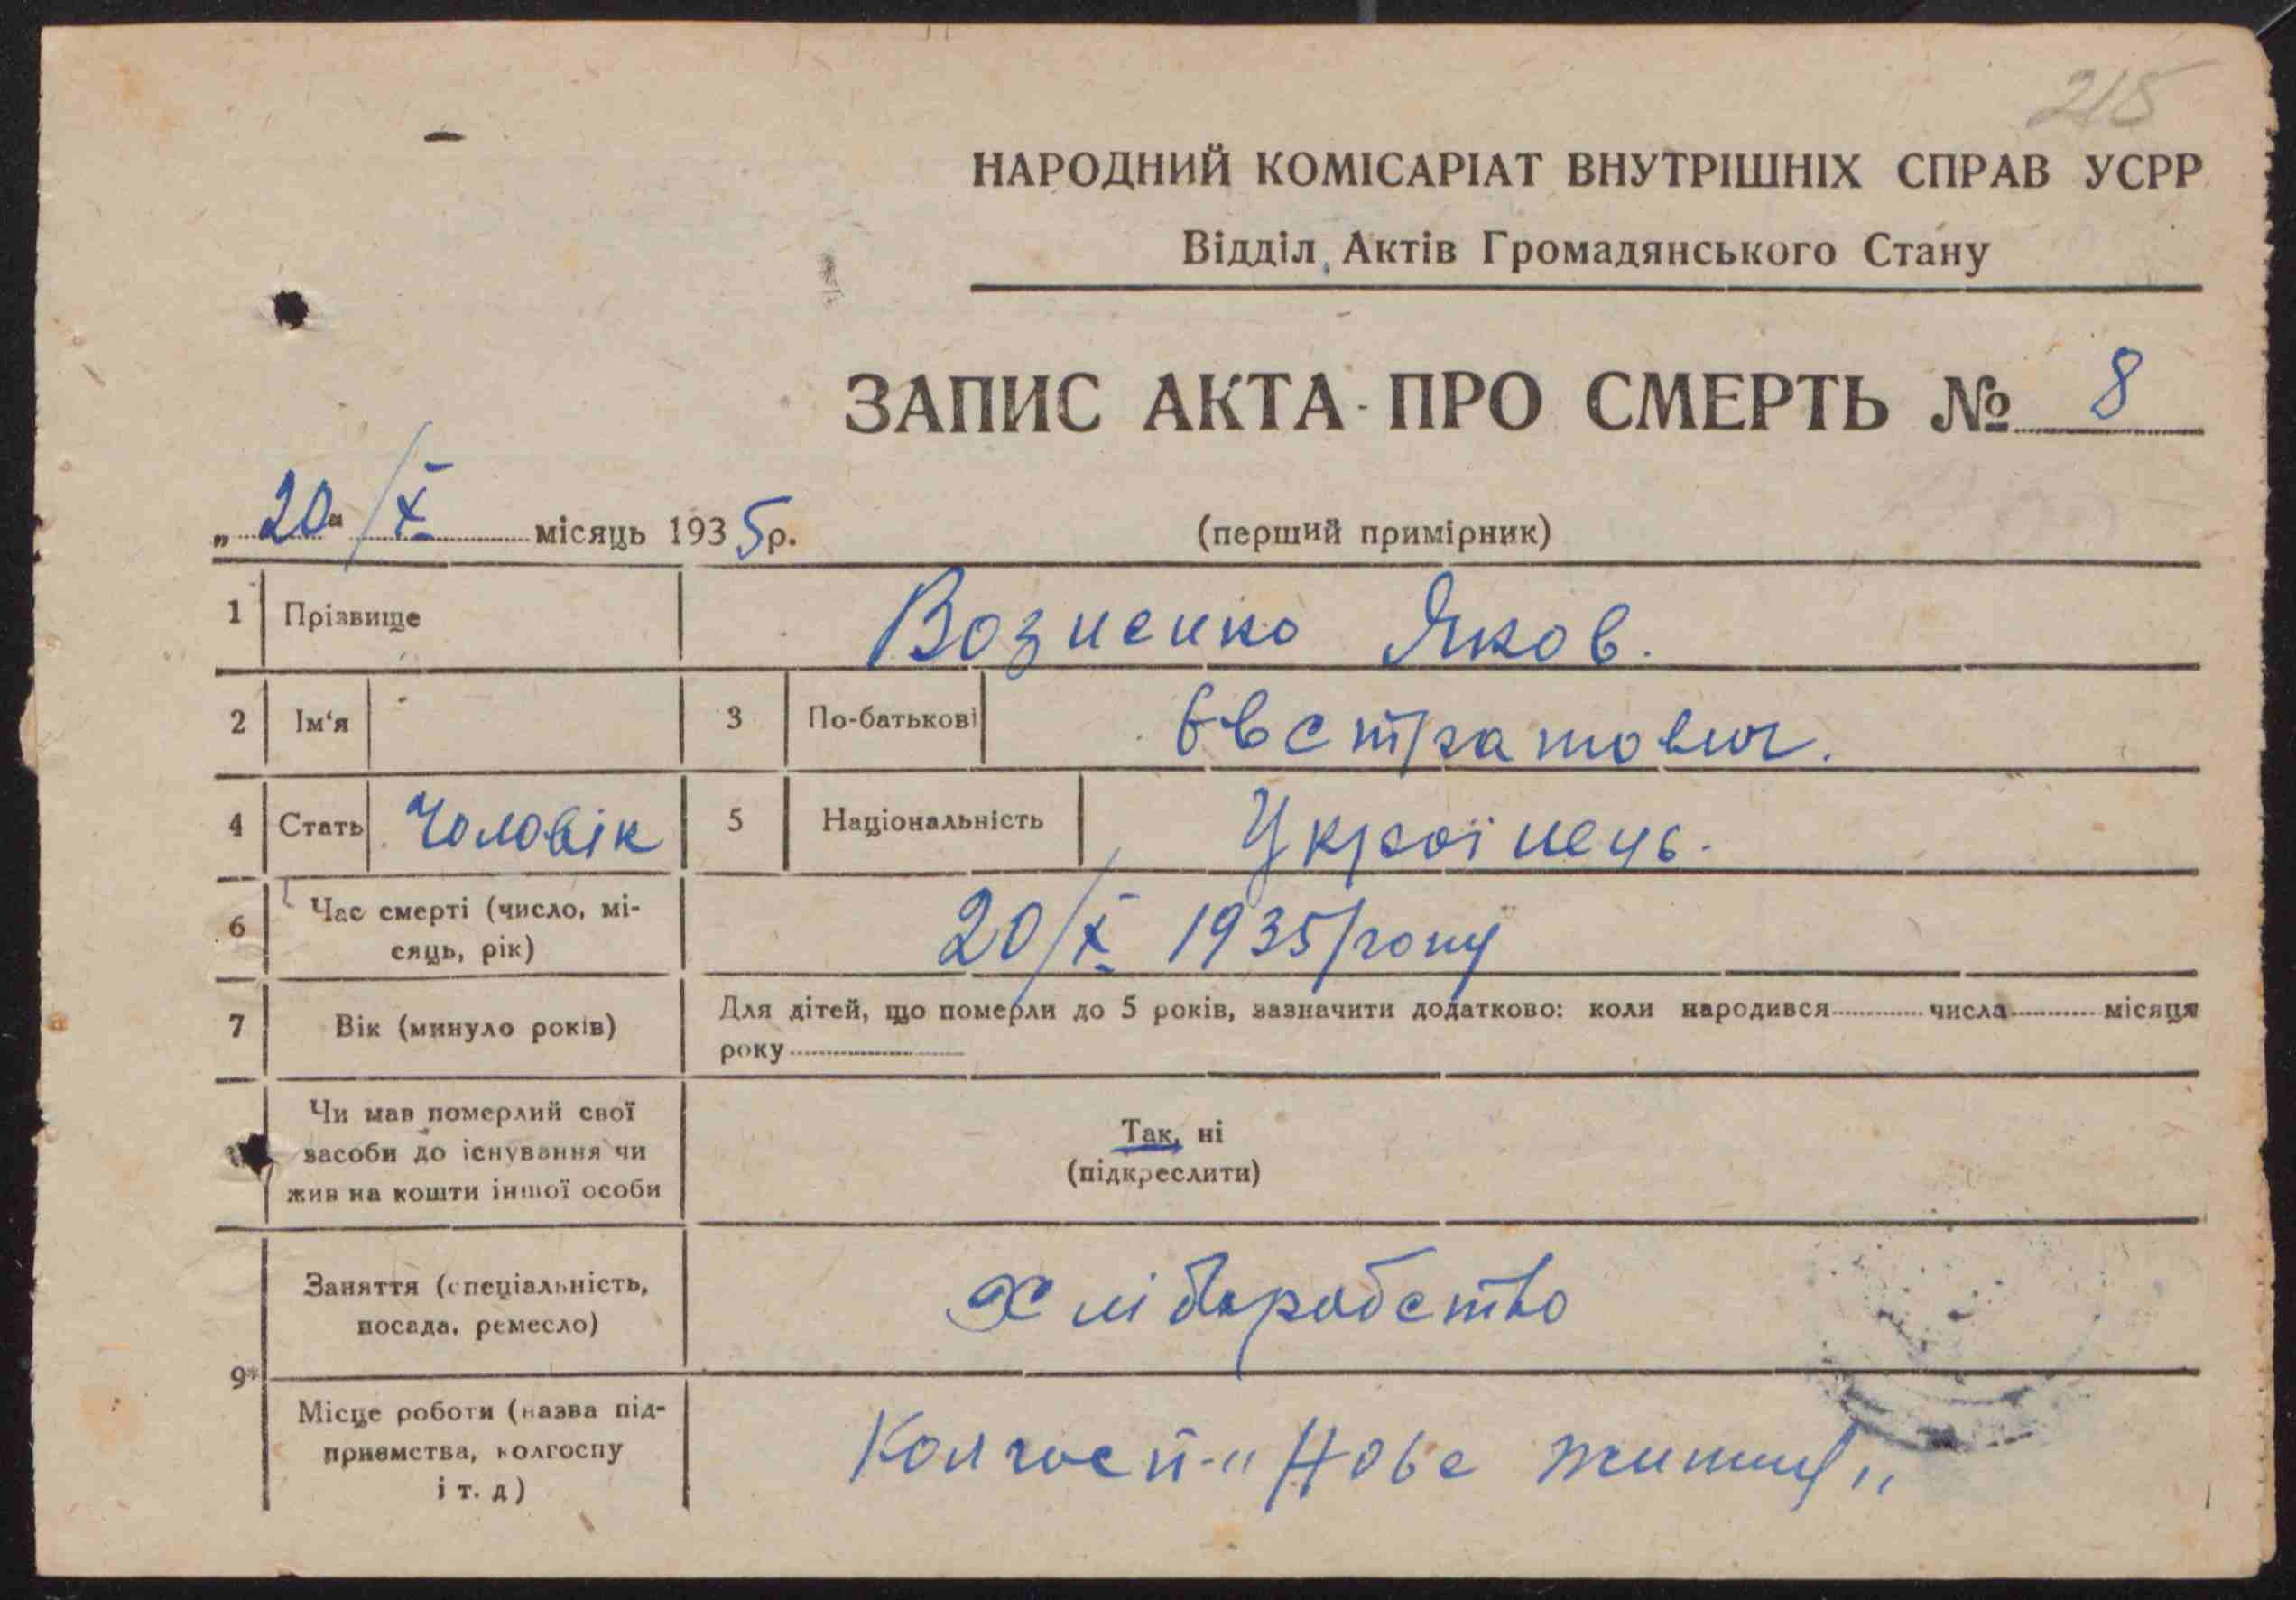 215
НАРОДНИЙ КОМІСАРІАТ ВНУТРІШНІХ СПРАВ УСРР
Відділ Актів Громадянського Стану
ЗАПИС АКТА ПРО СМЕРТЬ № 8
„20“ /X місяць 1935р.
(перший примірник)
1 Прізвище Возненко Яков.
2 Ім'я 3 По-батькові Евстратович.
4 Стать Чоловік 5 Національність Українець.
6 Час смерті (число, мі-
сяць, рік) 20/X 1935 року
7 Вік (минуло років) Для дітей, що померли до 5 років, зазначити додатково: коли народився числа місяця
року
Чи мав померлий свої
засоби до існування чи
жив на кошти іншої особи
Так, ні
(підкреслити)
9* Заняття (спеціальність,
посада, ремесло) Хліборобство
Місце роботи (назва під-
приємства, колгоспу
і т. д) Колгосп "Нове життя"